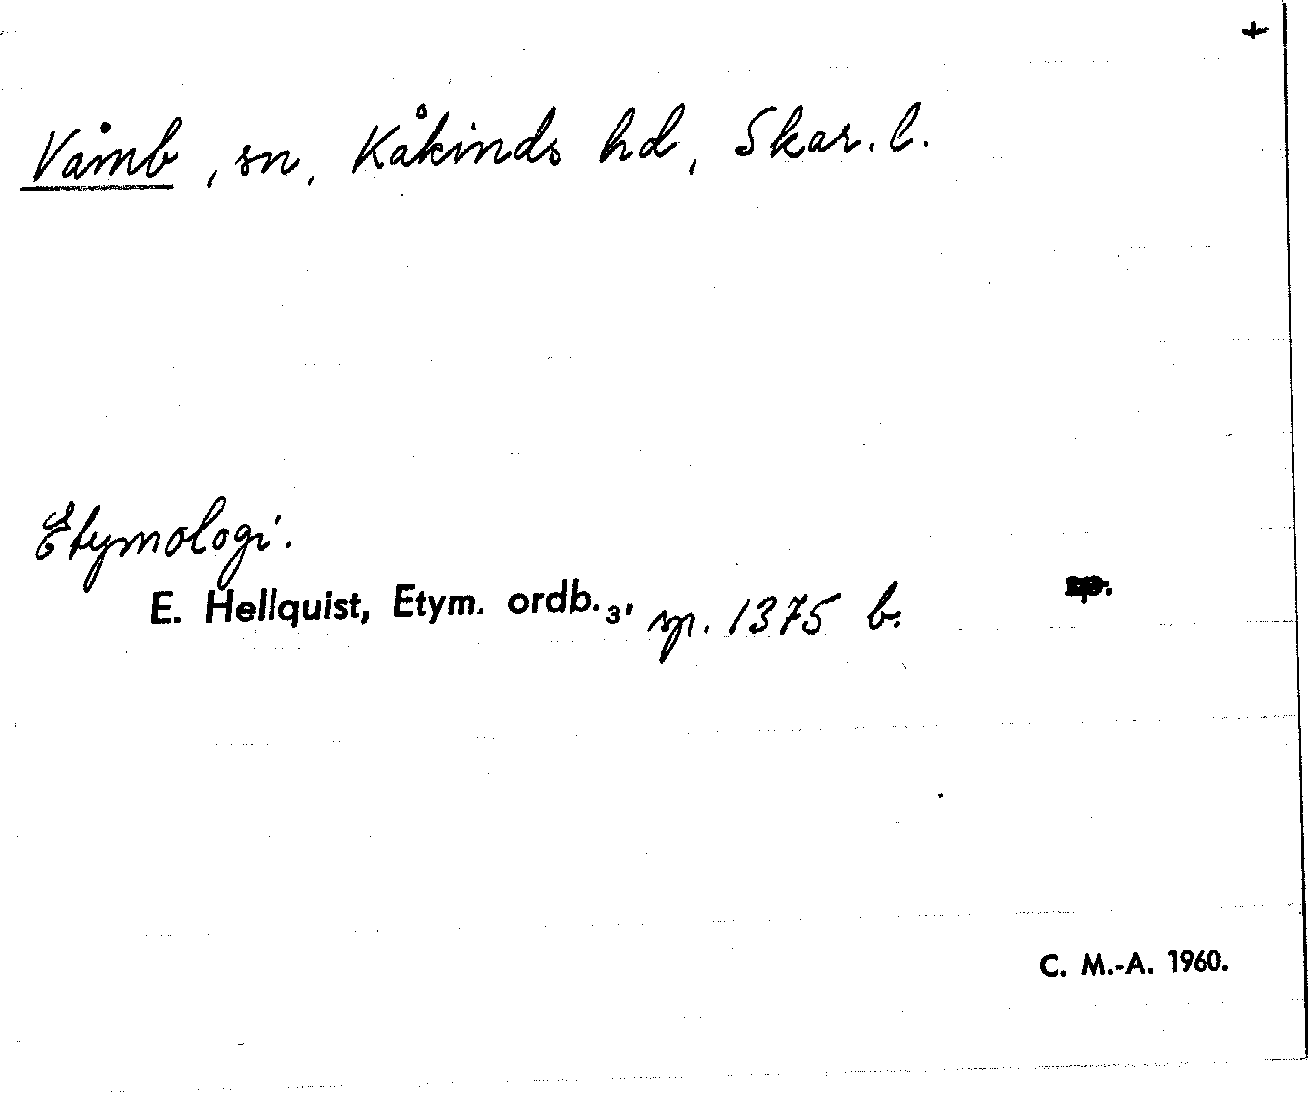 +
Våmb, sn, Kåkinds hd, Skar. l.
Etymologi.
E. Hellquist, Etym. ordb.₃, sp. 1375 b.
C. M.-A. 1960.